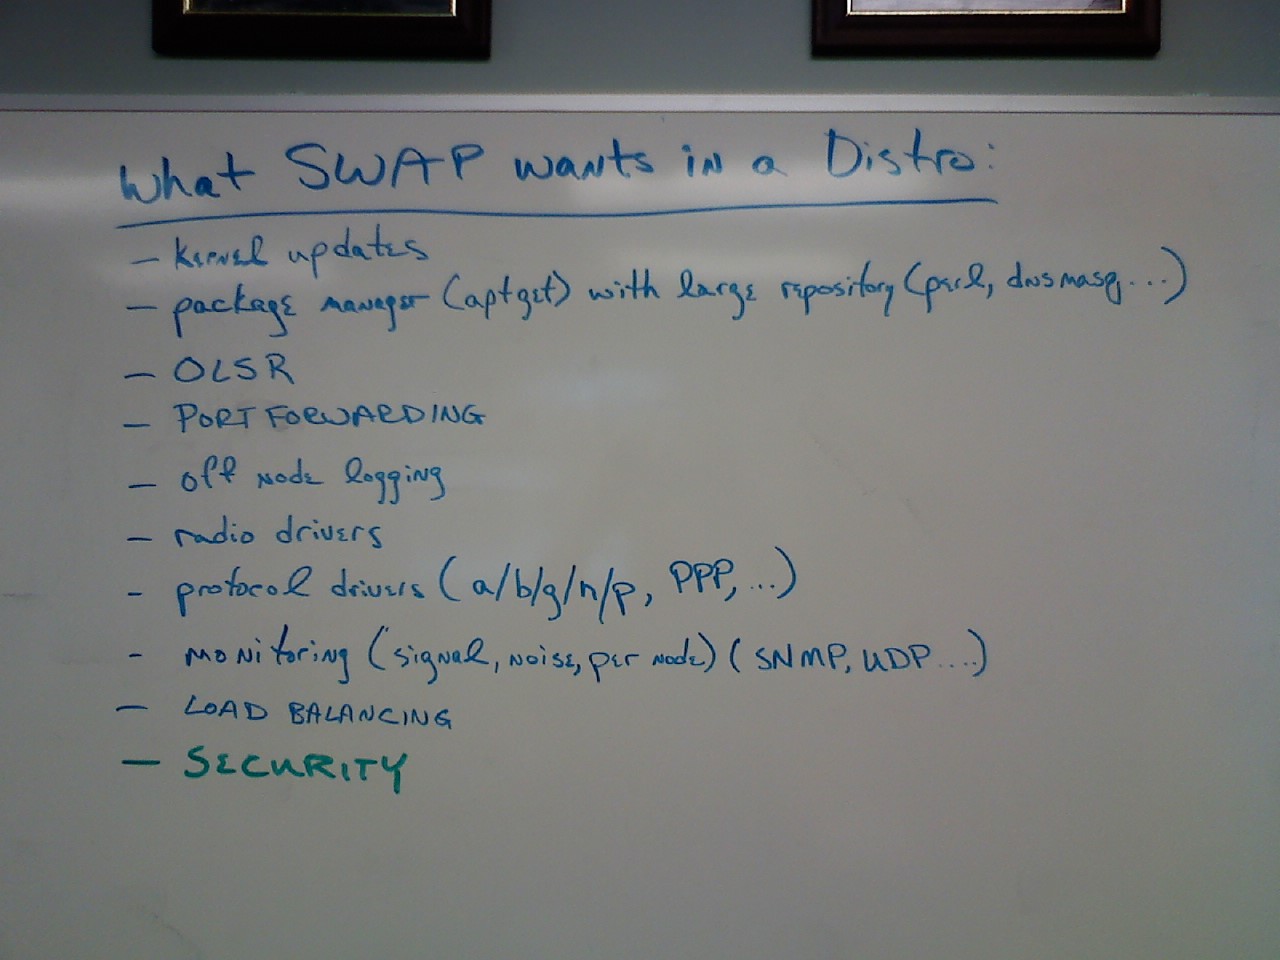 What SWAP wants in a Distro:
- kernel updates
- package manager (aptget) with large repository (perl, dnsmasq, ...)
- OLSR
- PORT FORWARDING
- off node logging
- radio drivers
- protocol drivers (a/b/g/n/p, PPP, ...)
- monitoring (signal, noise, per node) (SNMP, UDP....)
- LOAD BALANCING
- SECURITY